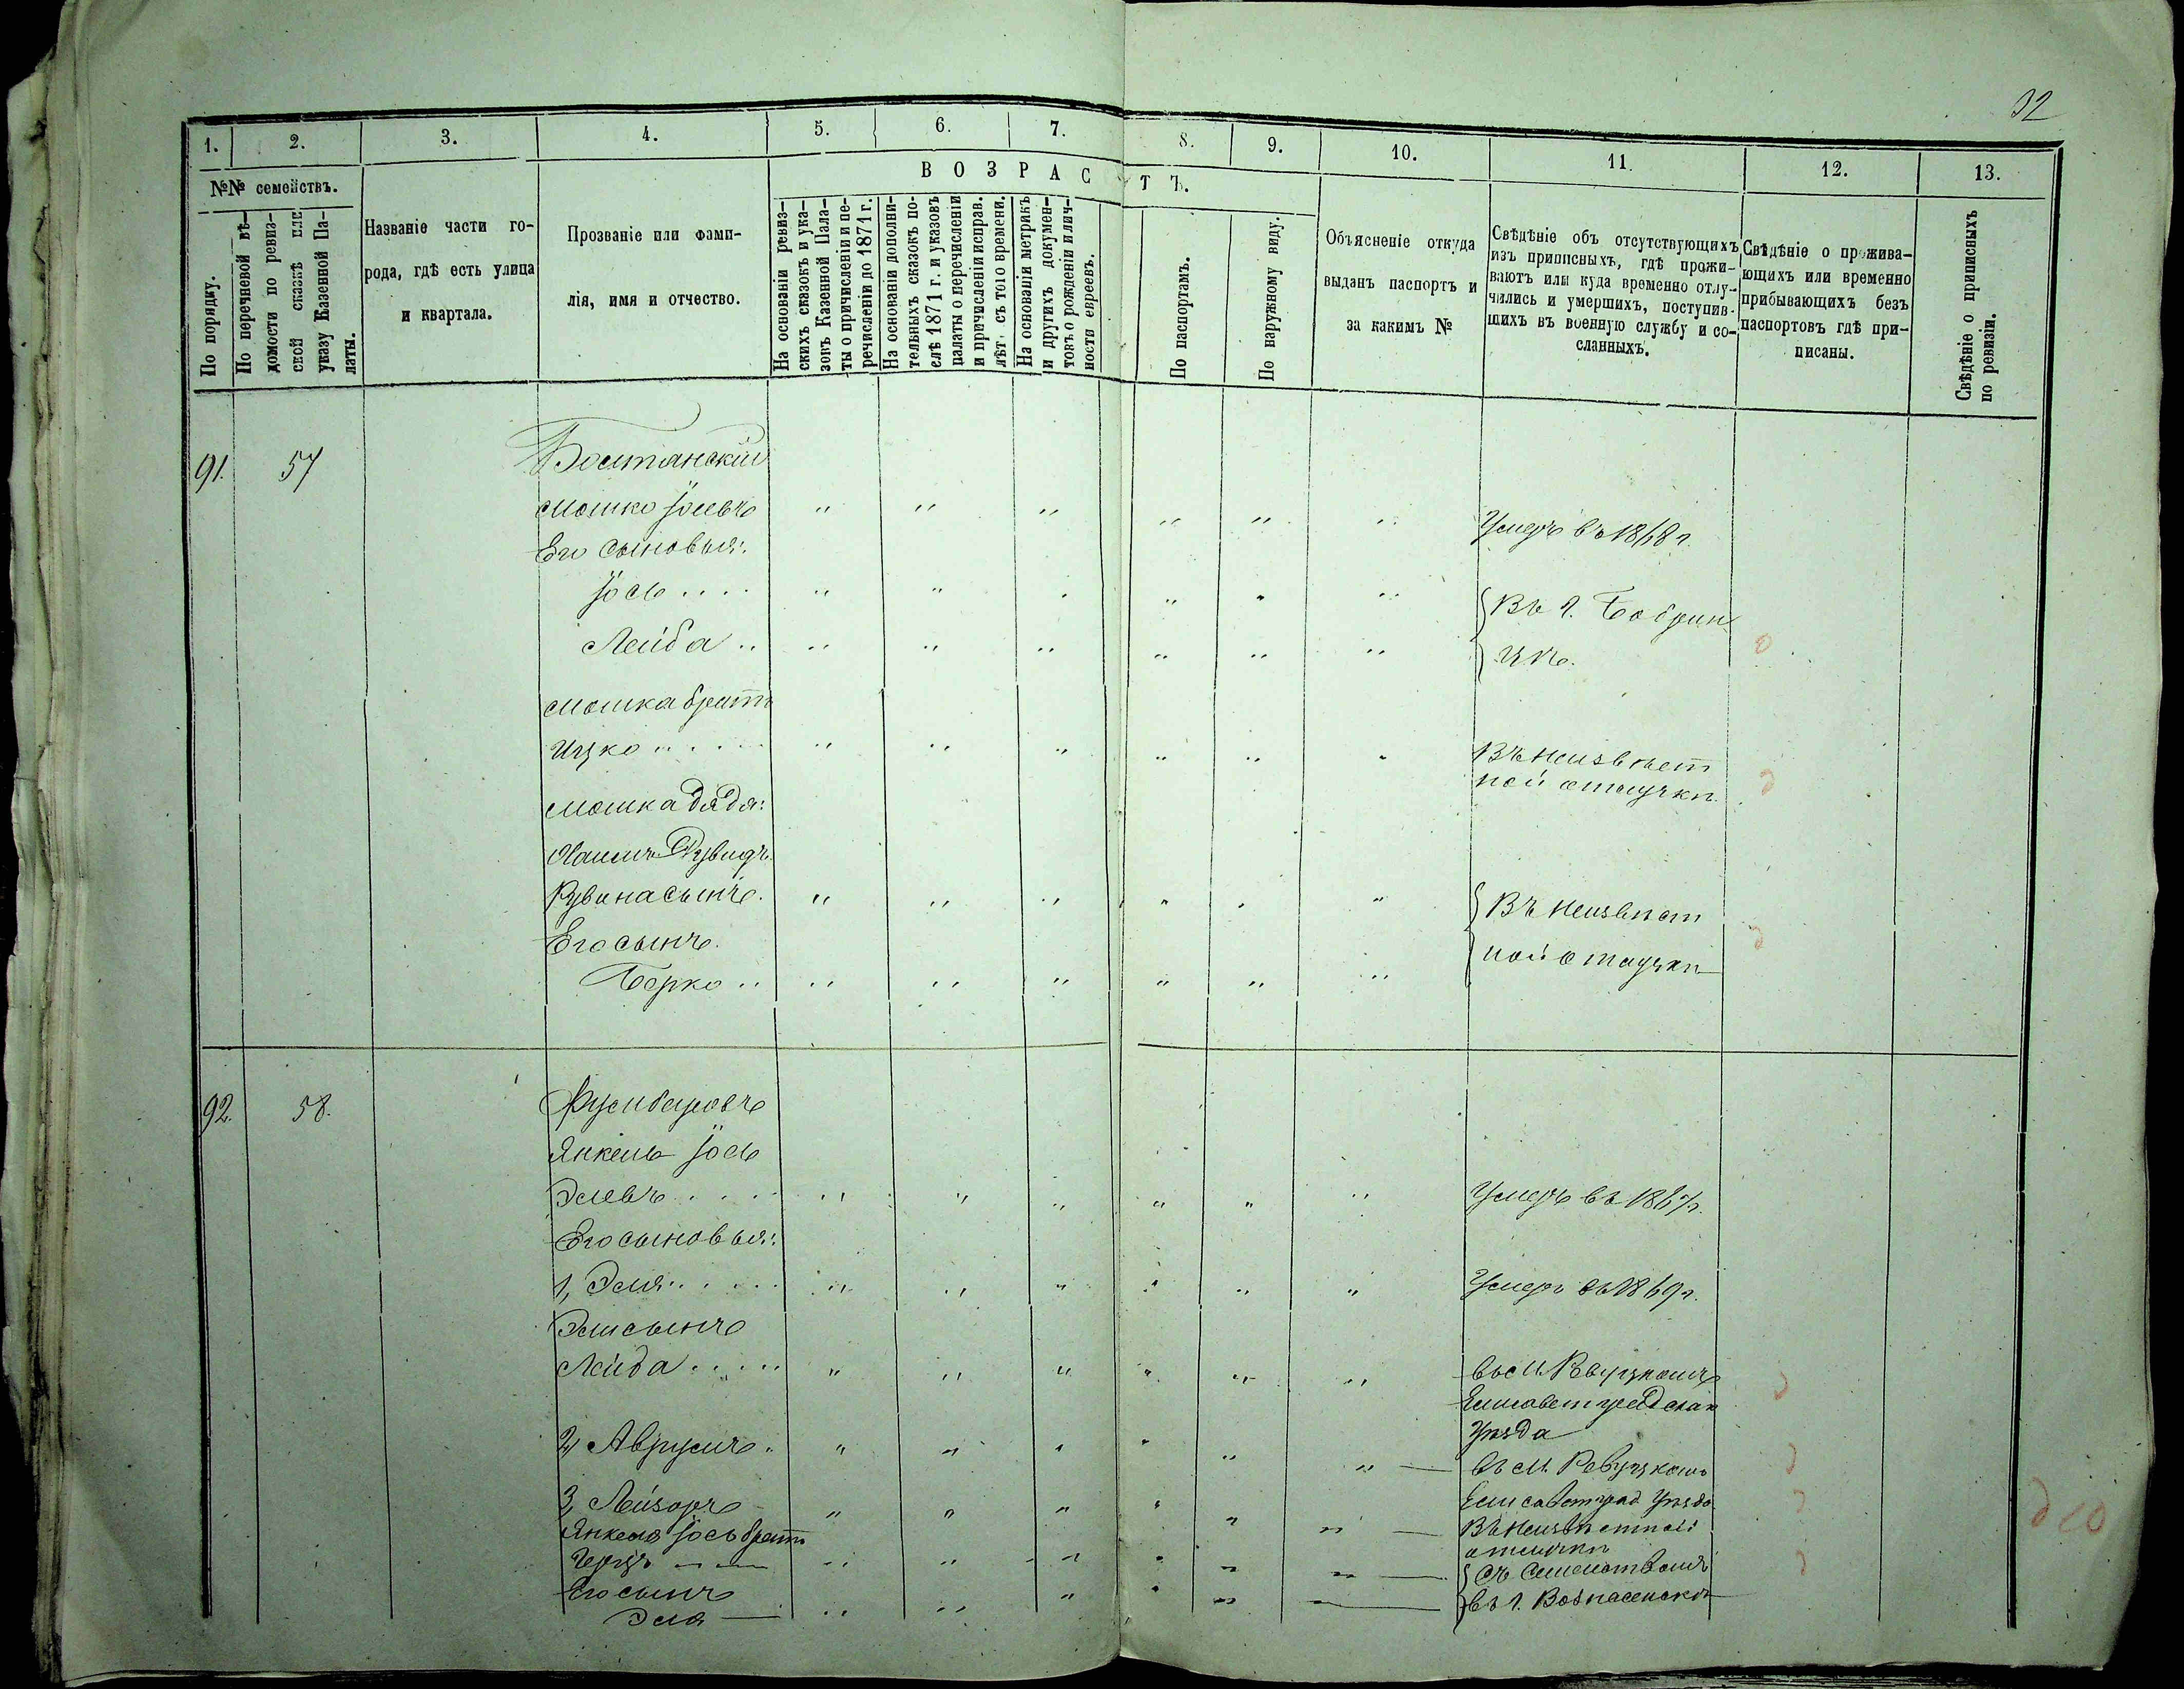 32
1. 2. 3. 4. 5. 6. 7. 8. 9. 10. 11. 12. 13.
№№ семействъ.
По порядку.
По перечневой вѣ-
домости по ревиз-
ской сказкѣ или
указу Казенной Па-
латы.
Названіе части го-
рода, гдѣ есть улица
и квартала.
Прозваніе или фами-
лія, имя и отчество.
ВОЗРАСТЪ.
На основаніи ревиз-
скихъ сказокъ и ука-
зовъ Казенной Пала-
ты о причисленіи и пе-
речисленіи до 1871 г.
На основаніи дополни-
тельныхъ сказокъ по-
слѣ 1871 г. и указовъ
палаты о перечисленіи
и причисленіи исправ.
лѣт. съ того времени.
На основаніи метрикъ
и другихъ докумен-
товъ о рожденіи и лич-
ности евреевъ.
По паспортамъ.
По наружному виду.
Объясненіе откуда
выданъ паспортъ и
за какимъ №
Свѣдѣніе объ отсутствующихъ
изъ приписныхъ, гдѣ прожи-
ваютъ или куда временно отлу-
чились и умершихъ, поступив-
шихъ въ военную службу и со-
сланныхъ.
Свѣдѣніе о прожива-
ющихъ или временно
прибывающихъ безъ
паспортовъ гдѣ при-
писаны.
Свѣдѣніе о приписныхъ
по ревизіи.
91. 57 Болтянскій
Мошко Іосевъ " " " " " " Умеръ въ 1868 г.
Его сыновья:
Іось .... " " " " " " Въ г. Бобрин
Лейба .. " " " " " " цѣ.
Мошка братъ
Ицко " .... " " " " " " Въ неизвѣст
ной отлучкѣ.
Мошка дядя:
Хаимъ
Рувина сынъ. " " " " " " Въ неизвѣст
Его сынъ. ной отлучкѣ
Берко .. " " " " " "
92. 58.
Янкель Іось
Элевъ .... " " " " " " Умеръ въ 1867 г.
Его сыновья:
1, Эля ..... " " " " " " Умеръ въ 1869 г.
Эли сынъ
Лейба ..... " " " " " " въ м. Ревуцкомъ
Елисаветградскаго
Уѣзда
2, Аврумъ. " " " " " " въ м. Ревуцкомъ
Елисаветград Уѣзда
3, Лейзоръ " " " " " " Въ неизвѣстной
отлучкѣ
Янкеля Іось братъ
Герцъ " " " " " " Съ Семействомъ
Его сынъ въ г. Вознесенскѣ
Эля " " " " "